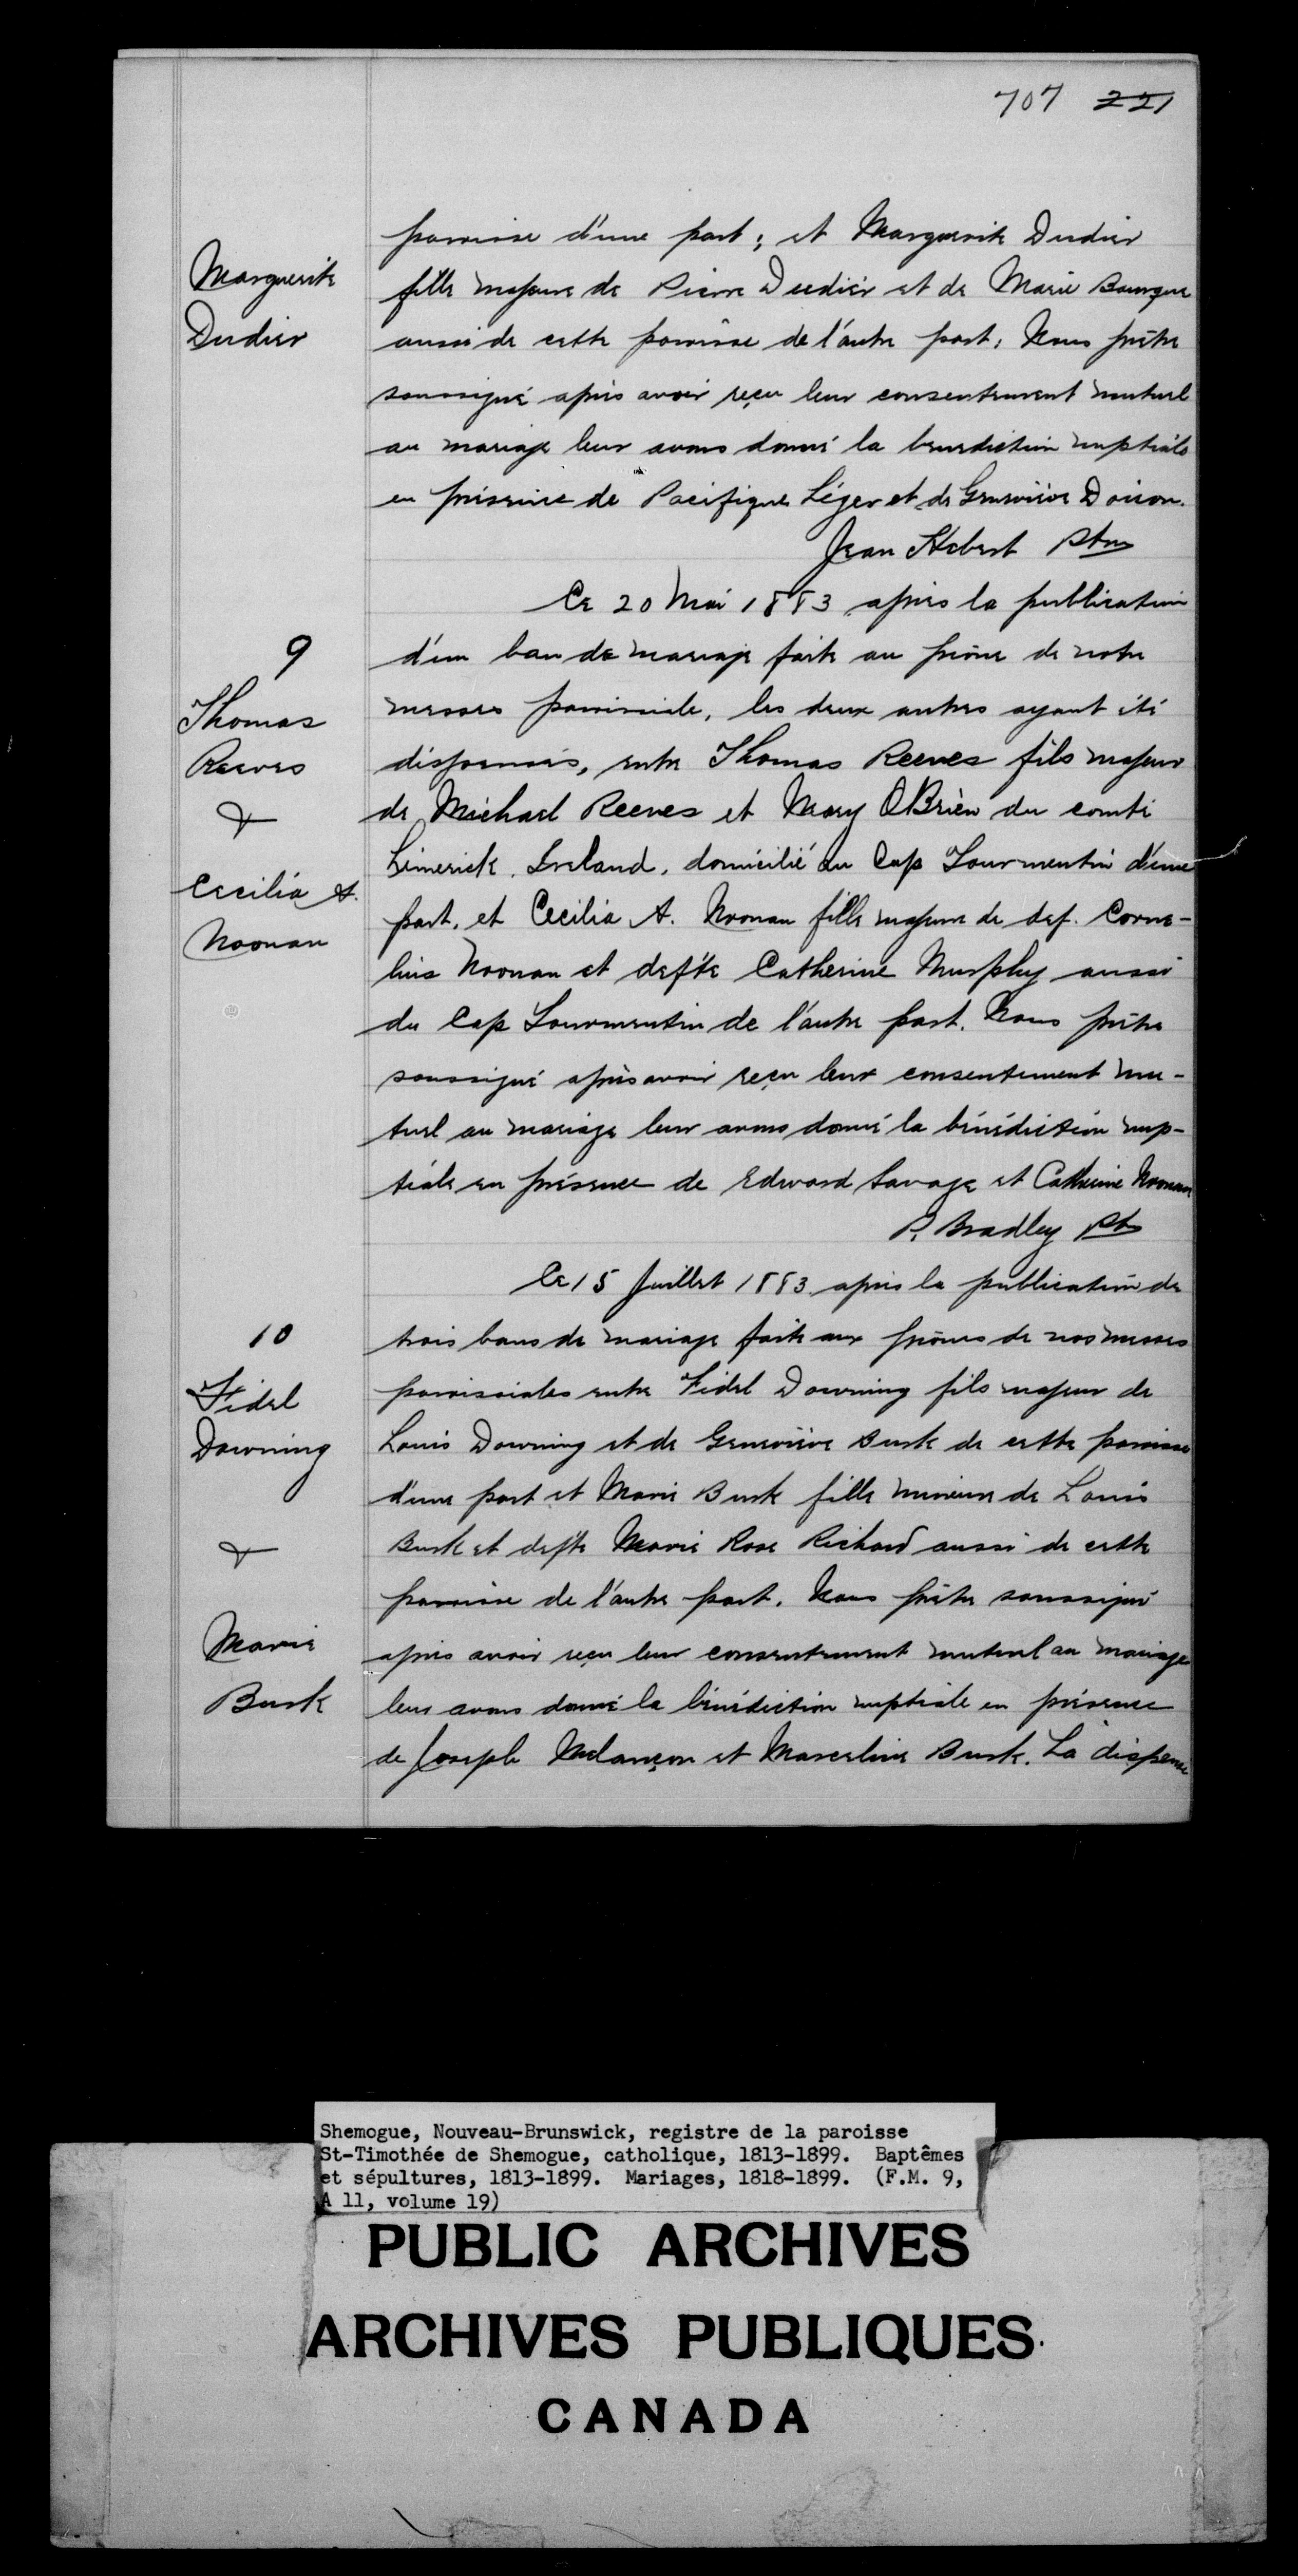 707 221
Marguerite
Dudier
paroisse d'une part; et Marguerite Dudier
fille majeure de Pierre Duedier et de Marie Bourque
aussi de cette paroisse de l'autre part, Nous prêtre
soussigné après avoir reçu leur consentement mutuel
au mariage leur avons donné la benediction nuptiale
en présence de Pacifique Léger et de Geneviève Doiron.
Jean Hébert Ptre
9
Thomas
Reeves
&
Cecilia A.
Noonan
Ce 20 Mai 1883 après la publication
d'un ban de mariage faite au prône de notre
messes paroissiale, les deux autres ayant été
dispensés, entre Thomas Reeves fils majeur
de Michael Reeves et Mary O'Brien du comté
Limerick, Ireland, domicilié au Cap Tourmentin d'une
part, et Cecilia A. Noonan fille majeure de def. Corne-
lius Noonan et def'te Catherine Murphy aussi
du Cap Tourmentin de l'autre part. Nous prêtre
soussigné après avoir reçu leur consentement mu-
tuel au mariage leur avons donné la bénédiction nup-
tiale en présence de Edward Savage et Catherine Noonan
P. Bradley Pt
10
Fidel
Downing
&
Marie
Burk
Ce 15 Juillet 1883 après la publication de
trois bans de mariage faite aux prônes de nos messes
paroissiales entre Fidel Downing fils majeur de
Louis Downing et de Geneviève Burk de cette paroisse
d'une part et Marie Burk fille mineure de Louis
Burk et def'te Marie Rose Richard aussi de cette
paroisse de l'autre part. Nous prêtre soussigné
après avoir reçu leur consentement mutuel au mariage
leur avons donné la bénédiction nuptiale en présence
de Joseph Melançon et Marceline Burk. La dispense
Shemogue, Nouveau-Brunswick, registre de la paroisse
St-Timothée de Shemogue, catholique, 1813-1899. Baptêmes
et sépultures, 1813-1899. Mariages, 1818-1899. (F.M. 9,
A 11, volume 19)
PUBLIC ARCHIVES
ARCHIVES PUBLIQUES
CANADA